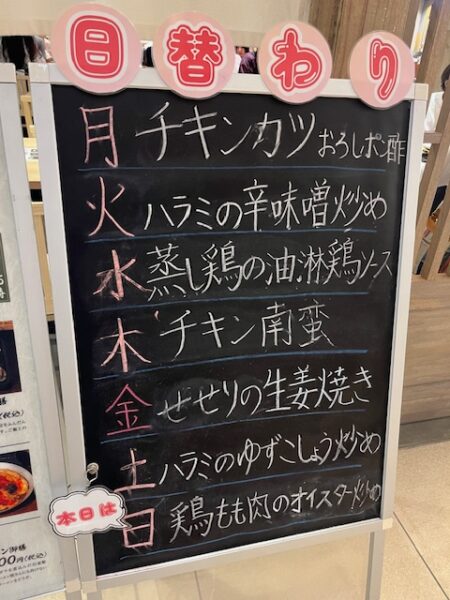 日替わり
月 チキンカツおろしポン酢
火 ハラミの辛味噌炒め
水 蒸し鶏の油淋鶏ソース
木 チキン南蛮
金 せせりの生姜焼き
土 ハラミのゆずこしょう炒め
本日は
日 鶏もも肉のオイスター炒め